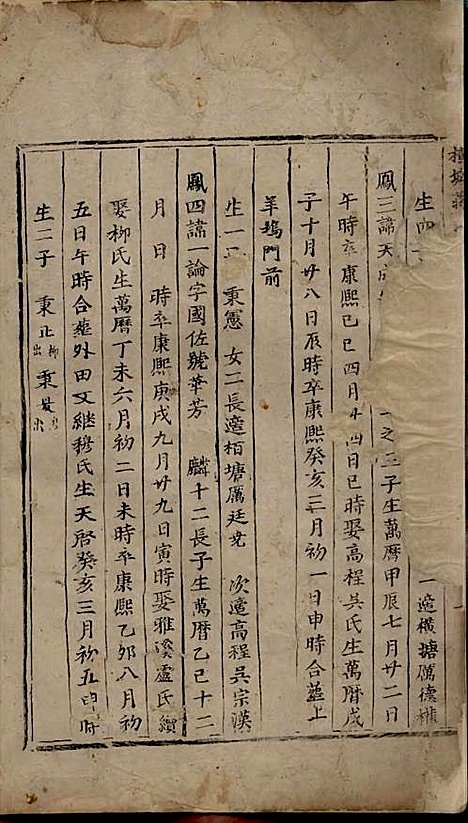 生四
一適橫塘厲德
鳳三諱天
之三子生萬曆甲辰七月廿二日
午時卒康熙己巳四月廿四日巳時娶高程吳氏生萬曆戊
子十月廿八日辰時卒康熙癸亥三月初一日申時合葬上
羊塢門前
生一子 秉憲 女二長適栢塘厲廷 次適高程吳宗漢
鳳四諱一論字國佐號華芳 麟十二長子生萬曆乙巳十二
月 日 時卒康熙庚戌九月廿九日寅時娶雅溪盧氏續
娶柳氏生萬曆丁未六月初二日未時卒康熙乙卯八月初
五日午時合葬外田又繼穆氏生天啓癸亥三月初五日 時
生二子 秉正柳出 秉